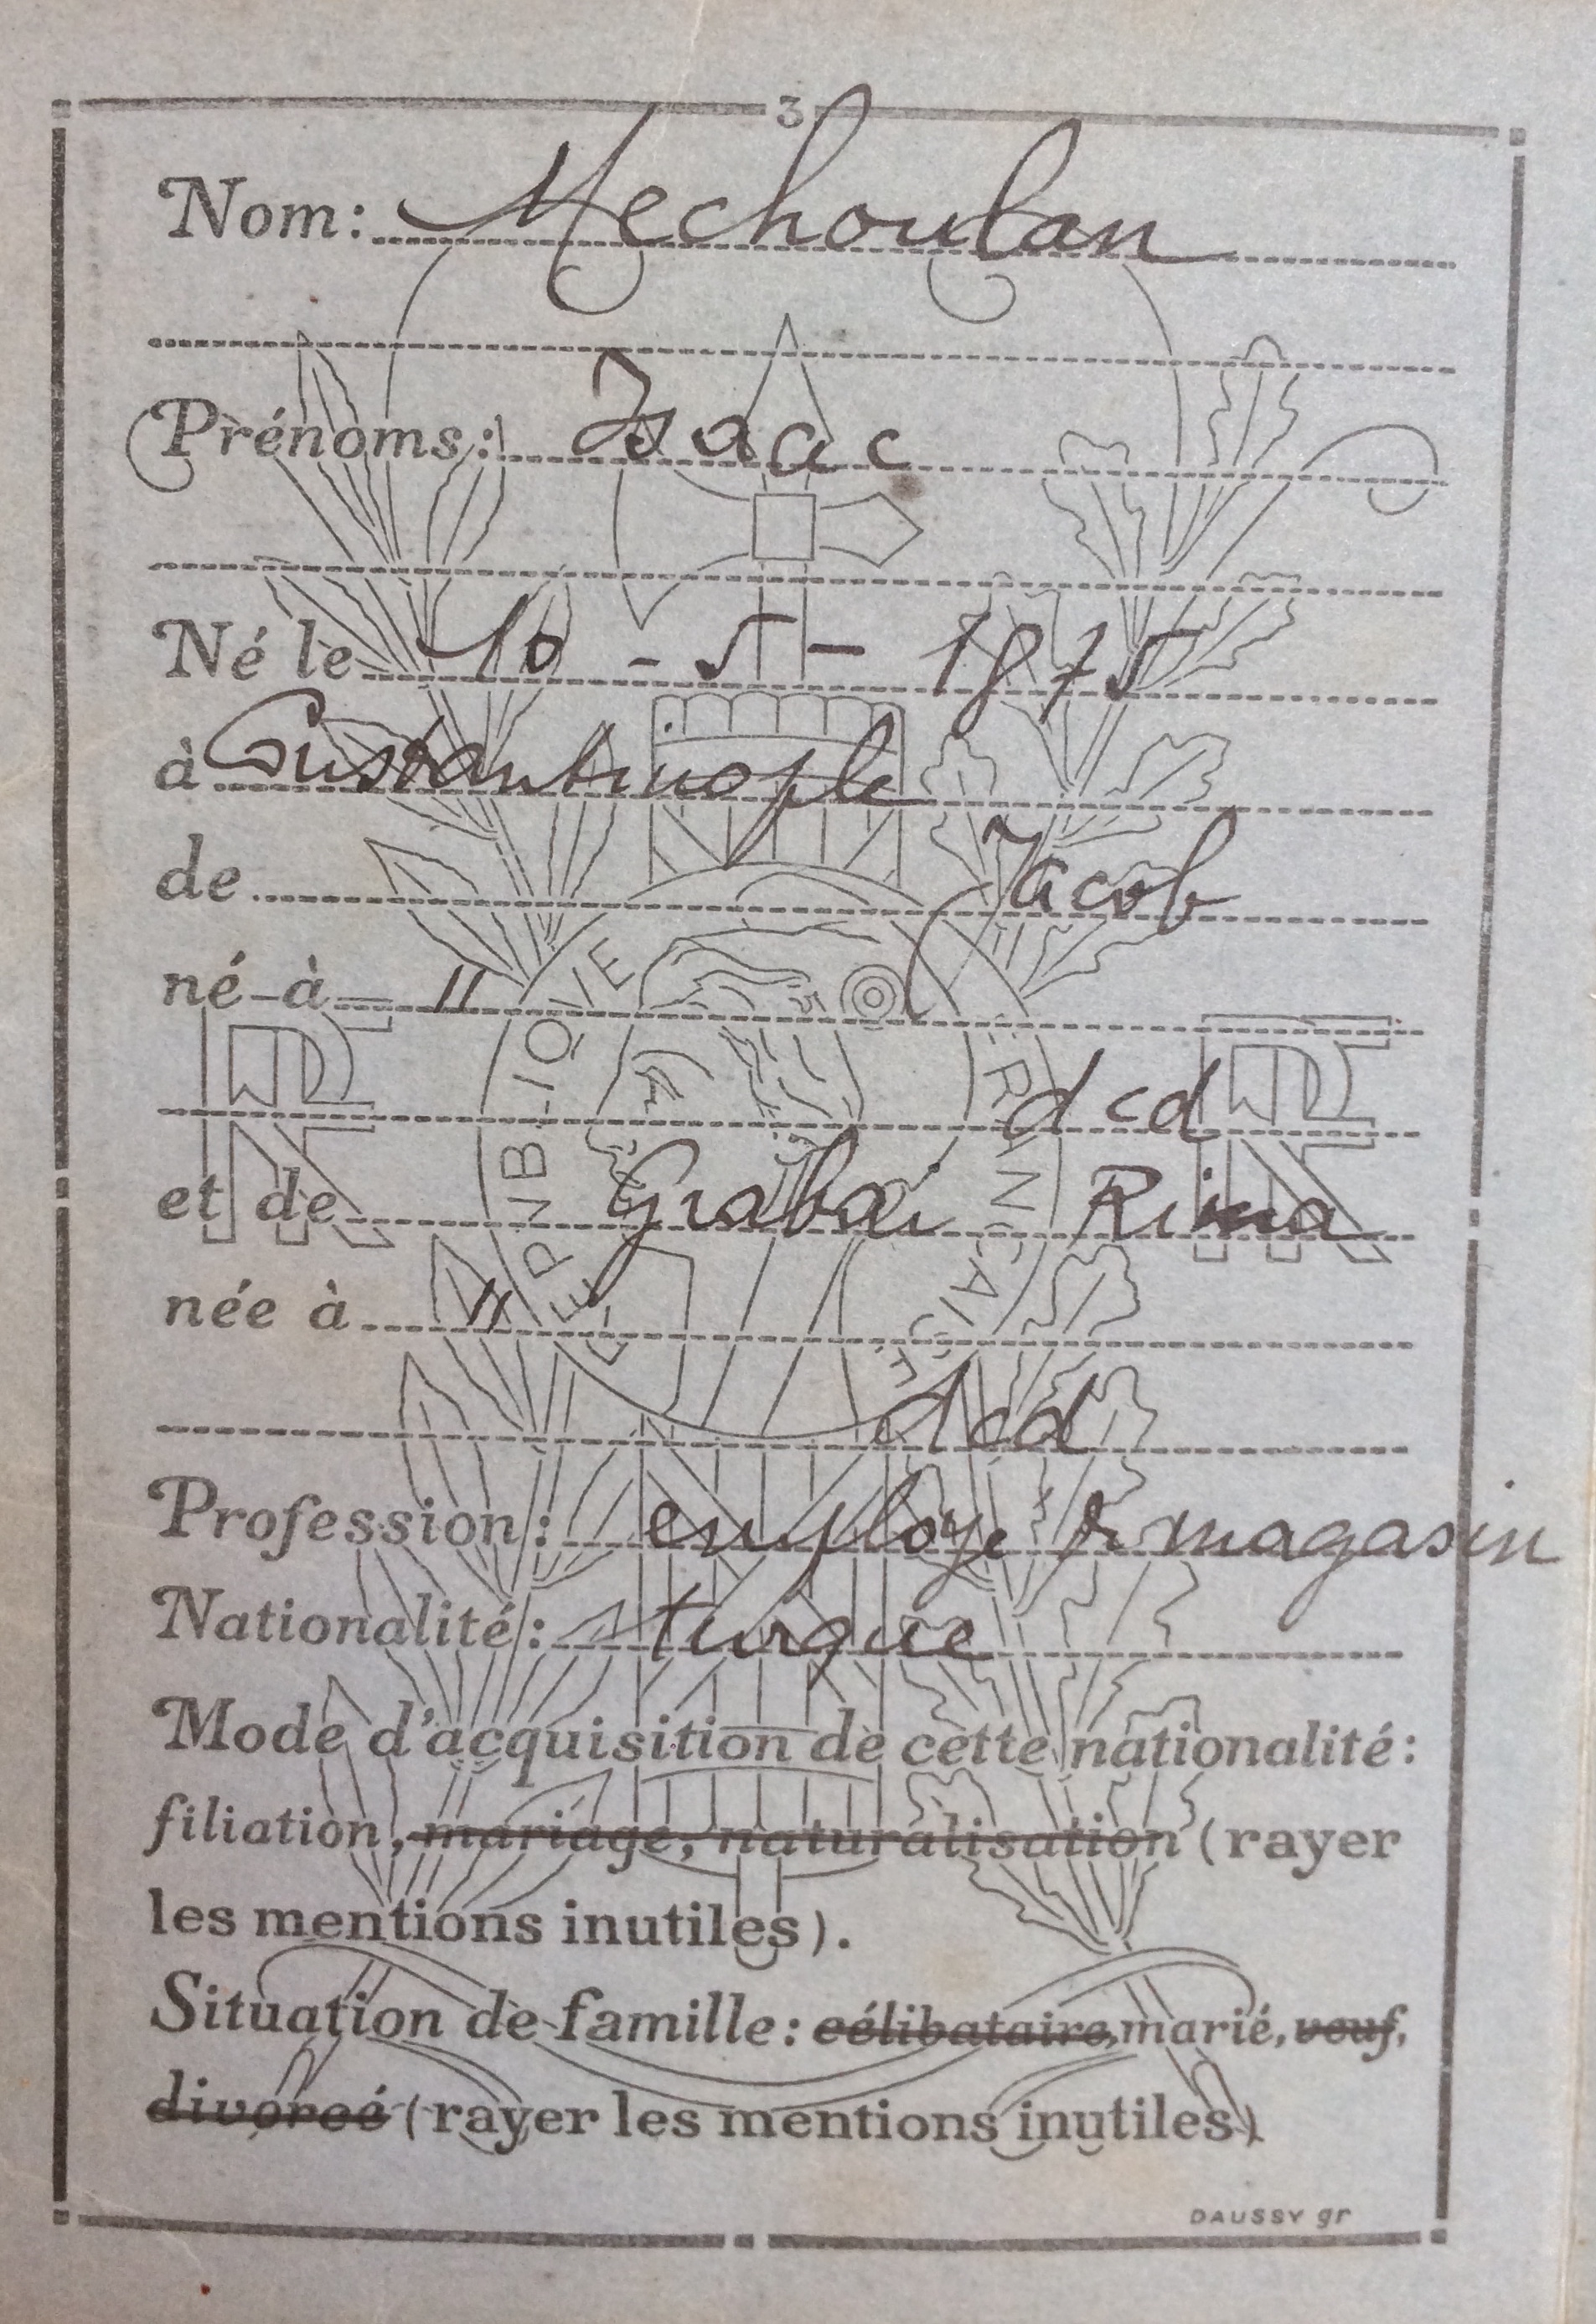 3
Nom: Mechoulan
Prénoms: Isaac
Né le 10 - 5 - 1875
à Constantinople
de Jacob
né à "
dcd
et de Rina
née à "
dcd
Profession: employé de magasin
Nationalité: turque
Mode d'acquisition de cette nationalité:
filiation, mariage, naturalisation (rayer
les mentions inutiles).
Situation de famille: célibataire, marié, veuf,
divorcé (rayer les mentions inutiles)
RF RF
REPUBLIQUE FRANCAISE
DAUSSY gr